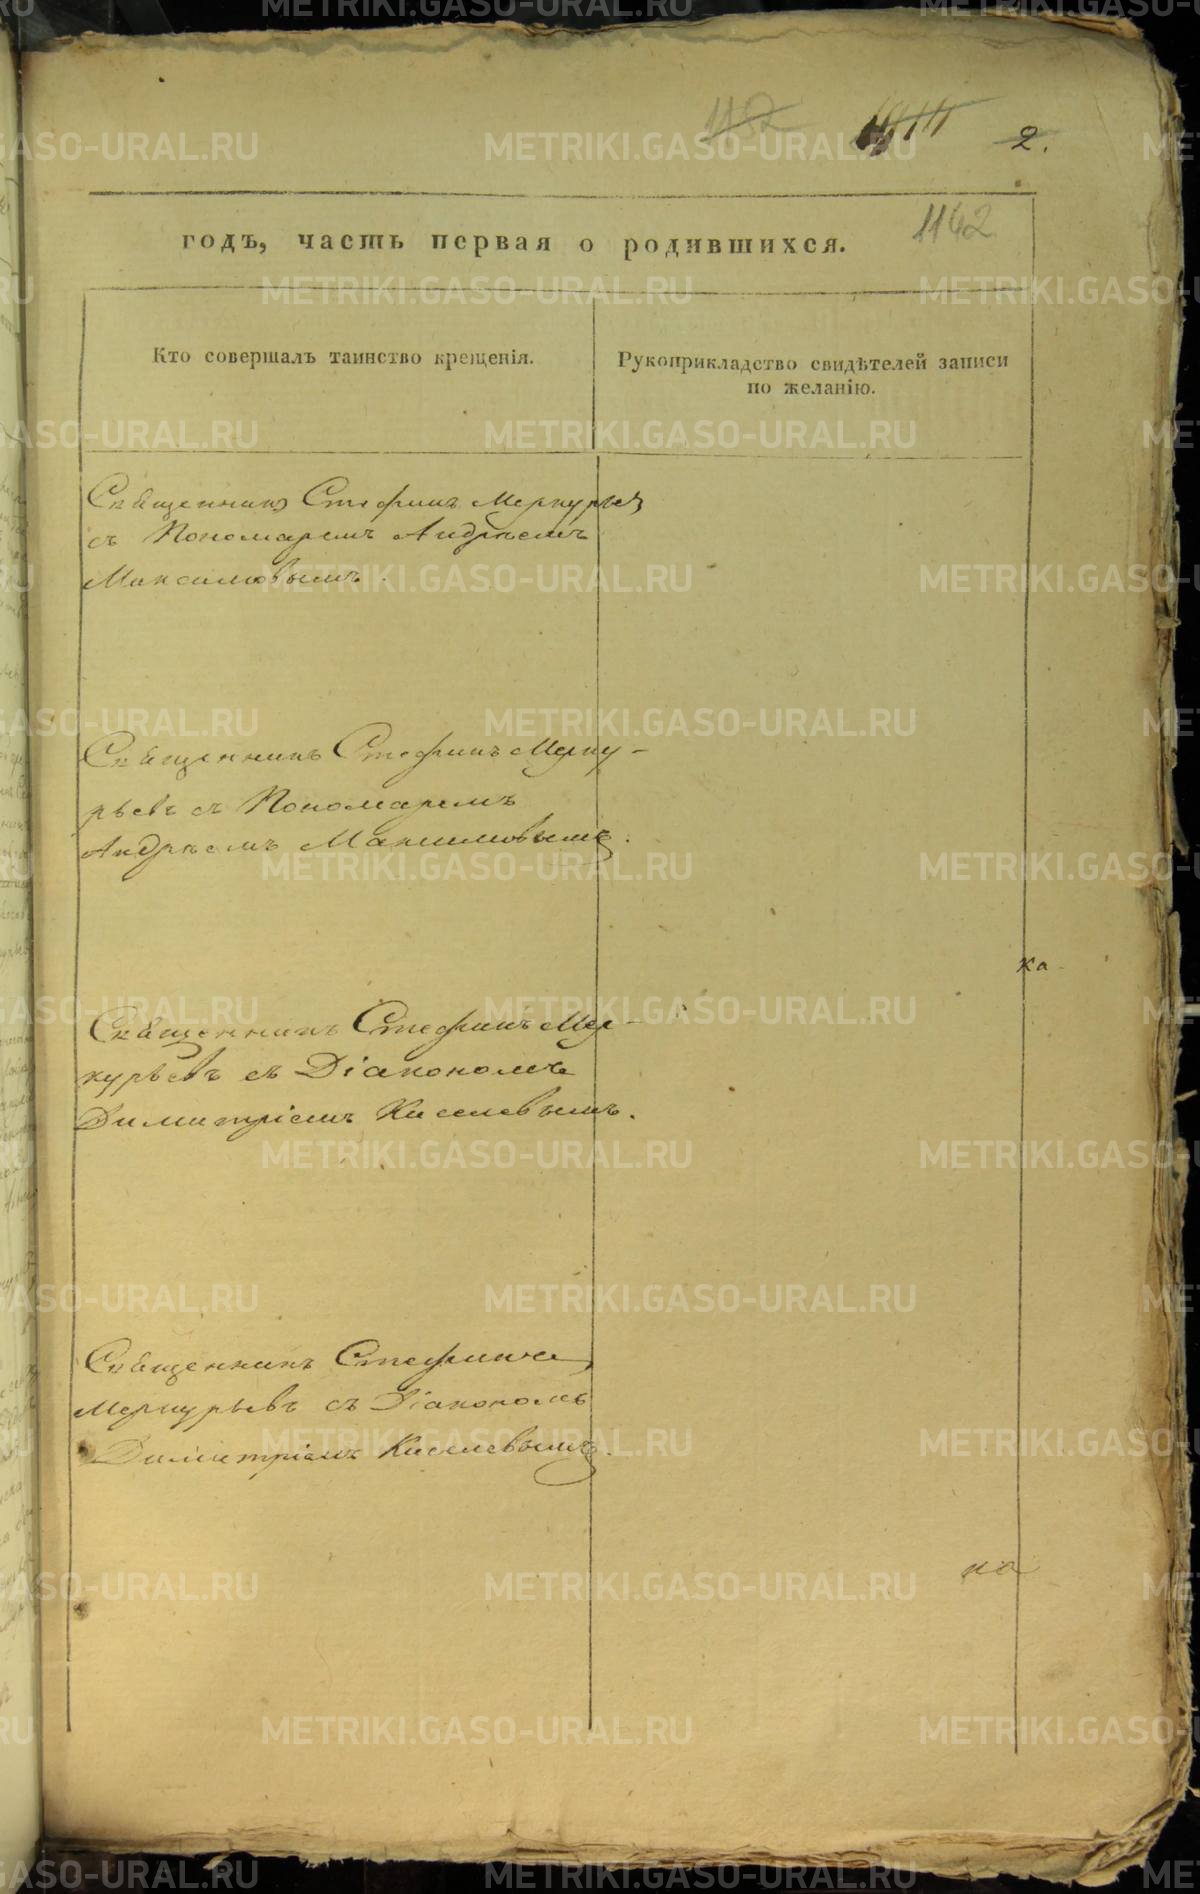 1152
2.
1142
годъ, часть первая о родившихся.
Кто совершалъ таинство крещенія.
Рукоприкладство свидѣтелей записи
по желанію.
Священникъ Стефанъ Меркурьевъ
съ Пономаремъ Андреемъ
Максимовымъ.
Священникъ Стефанъ Мерку-
рьевъ съ Пономаремъ
Андреемъ Максимовымъ.
ка
Священникъ Стефанъ Мер-
курьевъ съ Діакономъ
Димитріемъ Киселевымъ.
Священникъ Стефанъ
Меркурьевъ съ Діакономъ
Димитріемъ Киселевымъ.
ка
METRIKI.GASO-URAL.RU